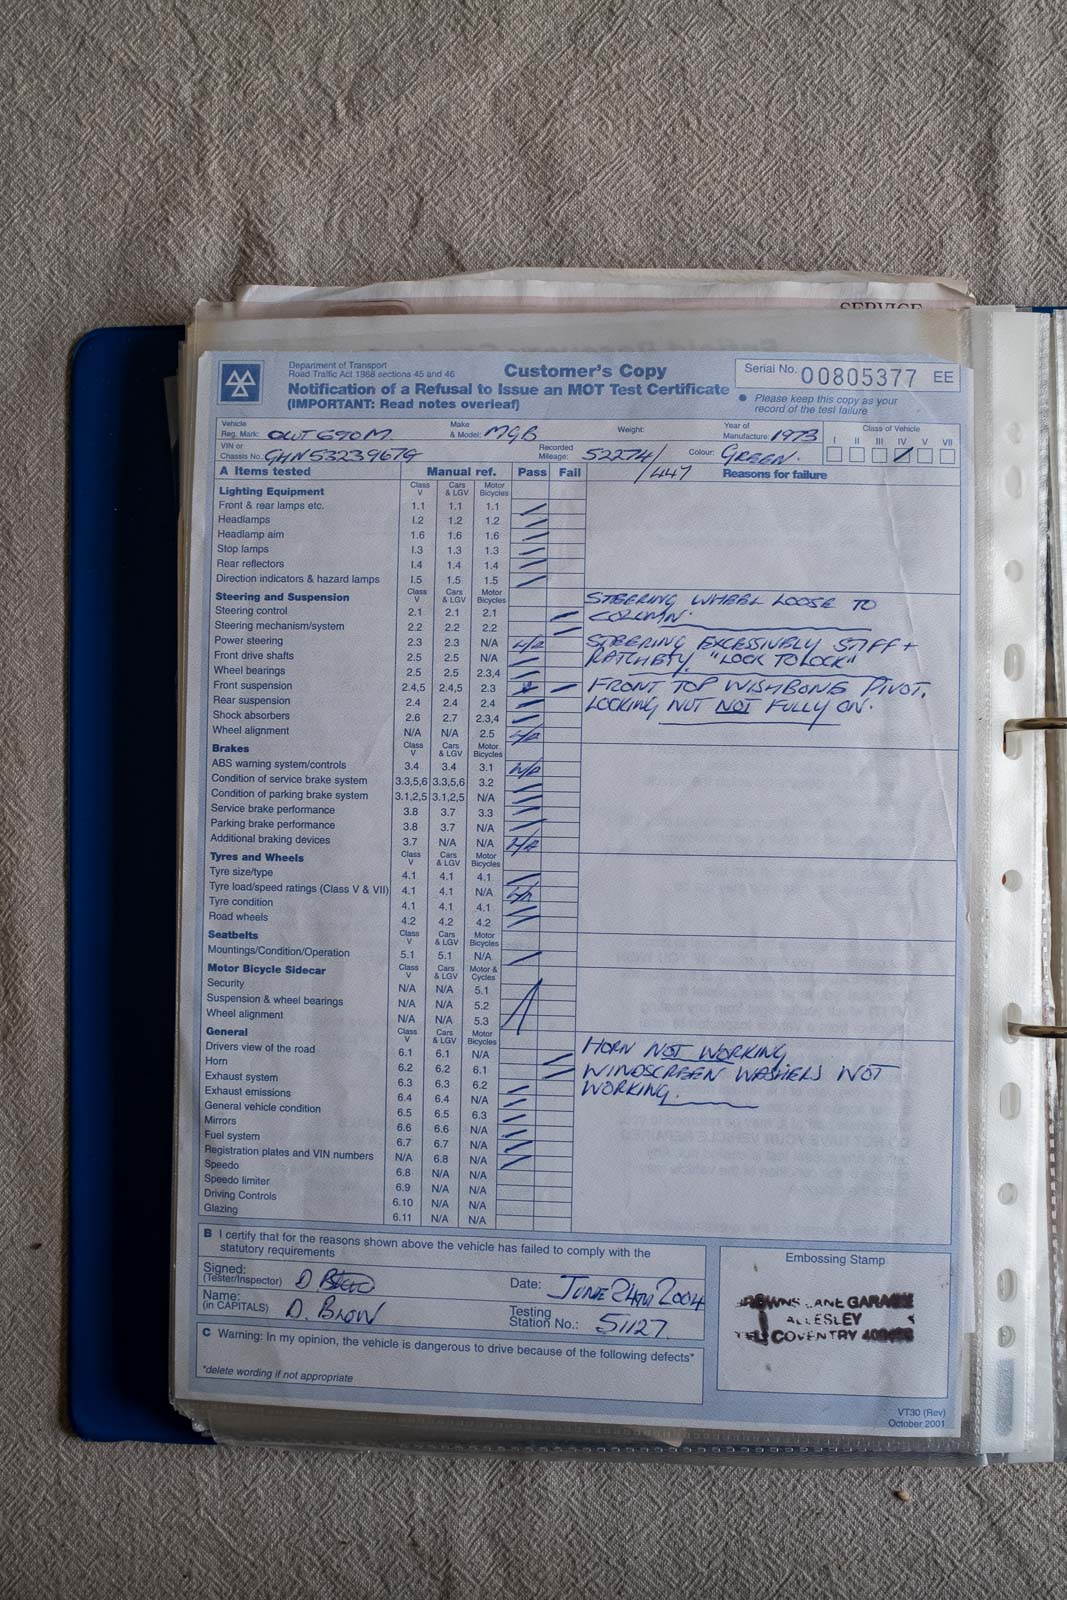 SERVICE
Department of Transport
Road Traffic Act 1988 sections 45 and 46
Customer's Copy
Notification of a Refusal to Issue an MOT Test Certificate
(IMPORTANT: Read notes overleaf)
Serial No. 00805377 EE
● Please keep this copy as your
record of the test failure
Vehicle Reg. Mark: OWT 690M Make & Model: MGB Weight: Year of Manufacture: 1973 Class of Vehicle
I II III IV V VII
VIN or Chassis No.: Recorded Mileage: 52274/ /447 Colour: GREEN.
A Items tested Manual ref. Pass Fail Reasons for failure
Lighting Equipment Class V Cars & LGV Motor Bicycles
Front & rear lamps etc. 1.1 1.1 1.1
Headlamps 1.2 1.2 1.2
Headlamp aim 1.6 1.6 1.6
Stop lamps 1.3 1.3 1.3
Rear reflectors 1.4 1.4 1.4
Direction indicators & hazard lamps 1.5 1.5 1.5
Steering and Suspension Class V Cars & LGV Motor Bicycles
Steering control 2.1 2.1 2.1
Steering mechanism/system 2.2 2.2 2.2
Power steering 2.3 2.3 N/A
Front drive shafts 2.5 2.5 N/A
Wheel bearings 2.5 2.5 2.3,4
Front suspension 2.4,5 2.4,5 2.3
Rear suspension 2.4 2.4 2.4
Shock absorbers 2.6 2.7 2.3,4
Wheel alignment N/A N/A 2.5
STEERING WHEEL LOOSE TO
COLUMN.
STEERING EXCESSIVELY STIFF +
RATCHETY. "LOCK TO LOCK"
FRONT TOP WISHBONE PIVOT.
LOCKING NUT NOT FULLY ON.
Brakes Class V Cars & LGV Motor Bicycles
ABS warning system/controls 3.4 3.4 3.1
Condition of service brake system 3.3,5,6 3.3,5,6 3.2
Condition of parking brake system 3.1,2,5 3.1,2,5 N/A
Service brake performance 3.8 3.7 3.3
Parking brake performance 3.8 3.7 N/A
Additional braking devices 3.7 N/A N/A
Tyres and Wheels Class V Cars & LGV Motor Bicycles
Tyre size/type 4.1 4.1 4.1
Tyre load/speed ratings (Class V & VII) 4.1 4.1 N/A
Tyre condition 4.1 4.1 4.1
Road wheels 4.2 4.2 4.2
Seatbelts Class V Cars & LGV Motor Bicycles
Mountings/Condition/Operation 5.1 5.1 N/A
Motor Bicycle Sidecar Class V Cars & LGV Motor & Cycles
Security N/A N/A 5.1
Suspension & wheel bearings N/A N/A 5.2
Wheel alignment N/A N/A 5.3
General Class V Cars & LGV Motor Bicycles
Drivers view of the road 6.1 6.1 N/A
Horn 6.2 6.2 6.1
Exhaust system 6.3 6.3 6.2
Exhaust emissions 6.4 6.4 N/A
General vehicle condition 6.5 6.5 6.3
Mirrors 6.6 6.6 N/A
Fuel system 6.7 6.7 N/A
Registration plates and VIN numbers N/A 6.8 N/A
Speedo 6.8 N/A N/A
Speed limiter 6.9 N/A N/A
Driving Controls 6.10 N/A N/A
Glazing 6.11 N/A N/A
HORN NOT WORKING
WINDSCREEN WASHERS NOT
WORKING.
B I certify that for the reasons shown above the vehicle has failed to comply with the
statutory requirements
Signed: (Tester/Inspector) Date: JUNE 24TH 2004
Name: (in CAPITALS) Testing Station No.: 51127
C Warning: In my opinion, the vehicle is dangerous to drive because of the following defects*
*delete wording if not appropriate
Embossing Stamp
BROWNS LANE GARAGE
ALLESLEY
COVENTRY
VT30 (Rev)
October 2001